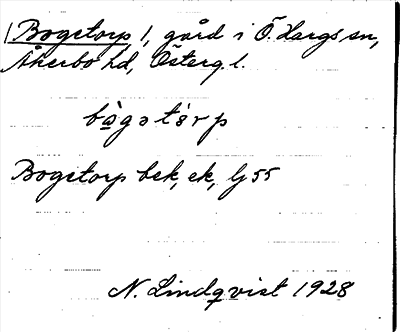 /Bogetorp/, gård i Ö. Hargs sn,
Åkerbo hd, Österg. l.
bògətór̀p
Bogetorp bek, ek, lj 55
N. Lindqvist 1928